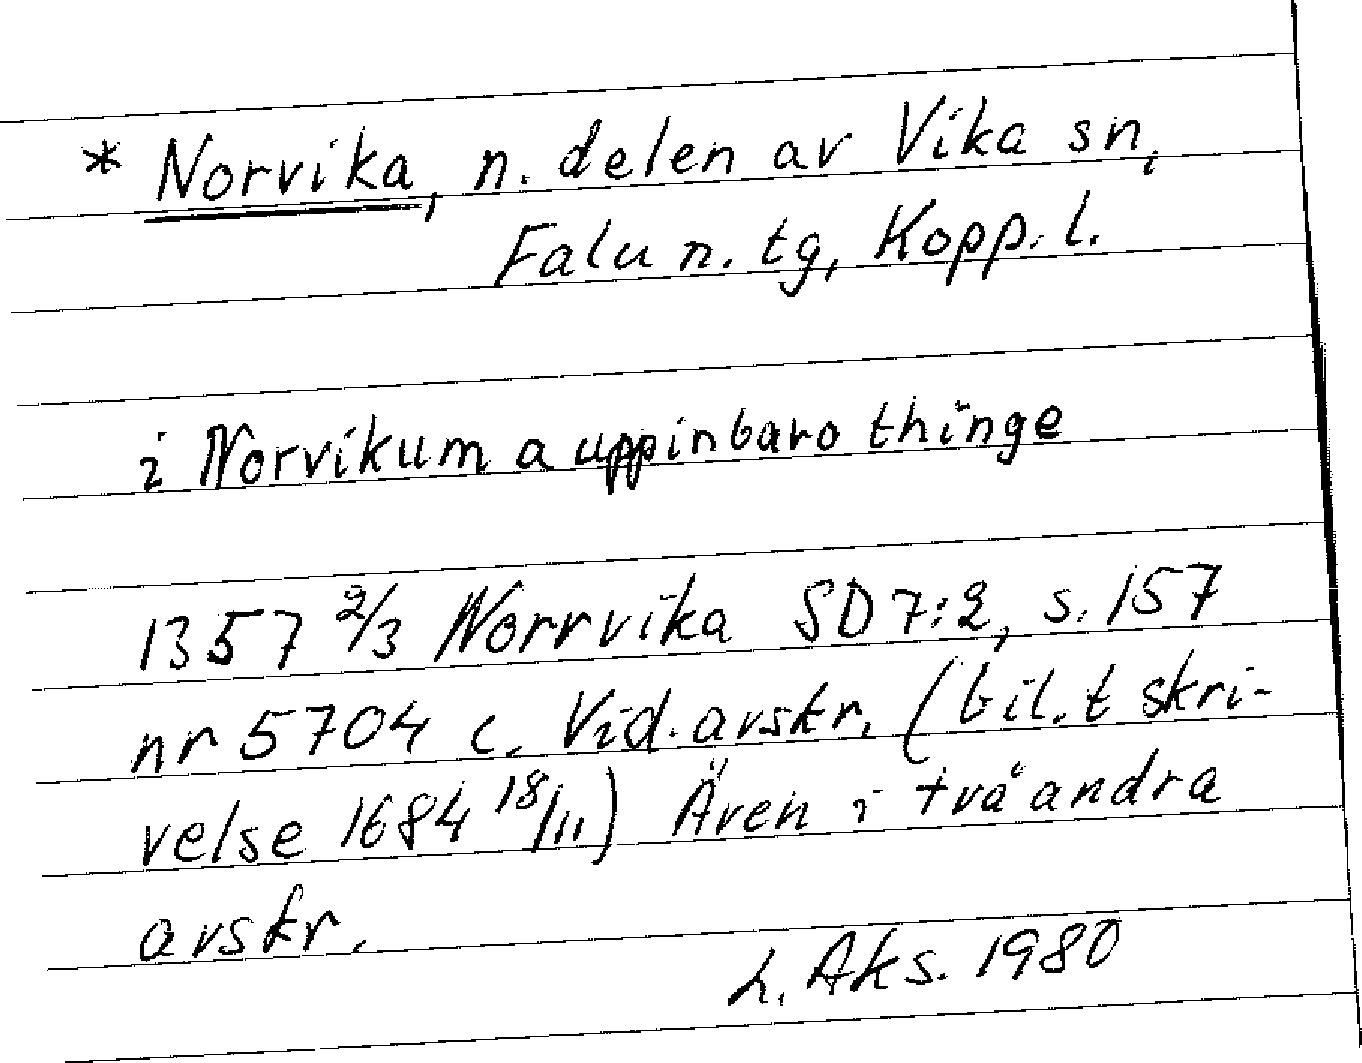 * Norvika, n. delen av Vika sn,
Falu n. tg, Kopp. l.
i Norvikum a uppinbaro thinge
1357 2/3 Norrvika SD 7:2, s. 157
nr 5704 c. Vid. avskr. (bil. t skri-
velse 1684 18/11) Även i två andra
avskr.
L. Aks. 1980